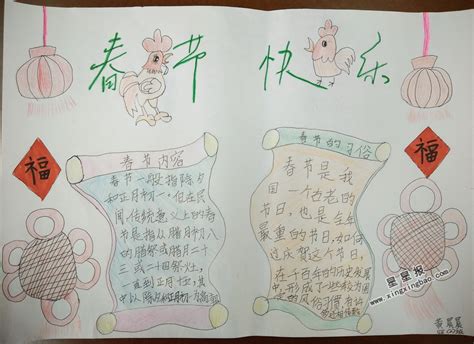 春节快乐
福
福
春节内容
春节一般指除夕
和正月初一。但在民
间传统意义上的春
节是指从腊月初八
的腊祭或腊月二十
三或二十四祭灶,
一直到正月十五,其
中以除夕和正月初一为高潮
春节的习俗
春节是我
国一个古老的
节日,也是全年
最重要的节日,如何
过庆贺这个节日,
在千百年的历史发展
中,形成了一些较为固
定的风俗习惯,有许
多还相传至今
星星报
www.xingxingbao.com